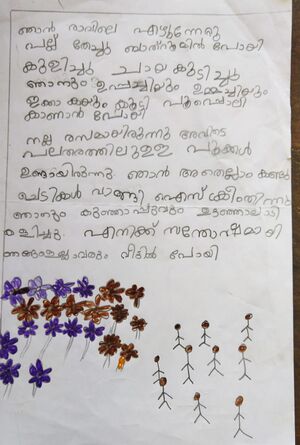 ഞാൻ രാവിലെ എഴുന്നേറ്റു
പല്ല് തേച്ചു ബാത്റൂമിൽ പോയി
കുളിച്ചു ചായ കുടിച്ചു
ഞാനും ഉപ്പച്ചിയും ഉമ്മച്ചിയും
ഇക്കാക്കയും കൂടി പൂപ്പൊലി
കാണാൻ പോയി
നല്ല രസമായിരുന്നു അവിടെ
പലതരത്തിലുള്ള പൂക്കൾ
ഉണ്ടായിരുന്നു. ഞാൻ അതെല്ലാം കണ്ടു
ചെടികൾ വാങ്ങി ഐസ്ക്രീം തിന്നു
ഞാനും കുഞ്ഞാപ്പുവും ഊഞ്ഞാലാടി
കളിച്ചു. എനിക്ക് സന്തോഷമായി
ഞങ്ങളെല്ലാവരും വീട്ടിൽ പോയി